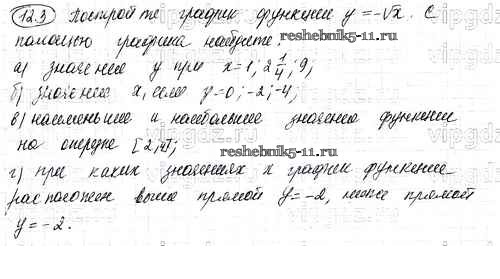 12.3 Постройте график функции y = -√x. С
помощью графика найдите:
reshebnik5-11.ru
а) значение y при x=1; 2 1/4; 9;
б) значение x, если y=0; -2; -4;
в) наименьшее и наибольшее значения функции
на отрезке [2;4];
reshebnik5-11.ru
г) при каких значениях x график функции
расположен выше прямой y=-2, ниже прямой
y=-2.